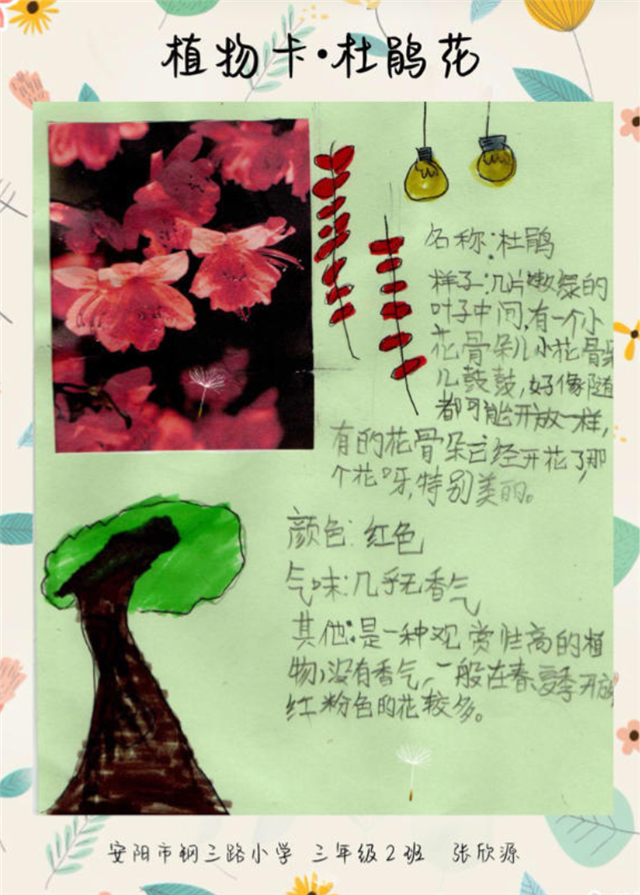 植物卡·杜鹃花
名称:杜鹃
样子:几片嫩绿的
叶子中间,有一个小
花骨朵儿小花骨朵
儿鼓鼓,好像随
都可能开放一样,
有的花骨朵已经开花了,那
个花呀,特别美丽。
颜色:红色
气味:几乎无香气
其他:是一种观赏性高的植
物,没有香气,一般在春、夏季开放
红粉色的花较多。
安阳市钢三路小学 三年级2班 张欣源